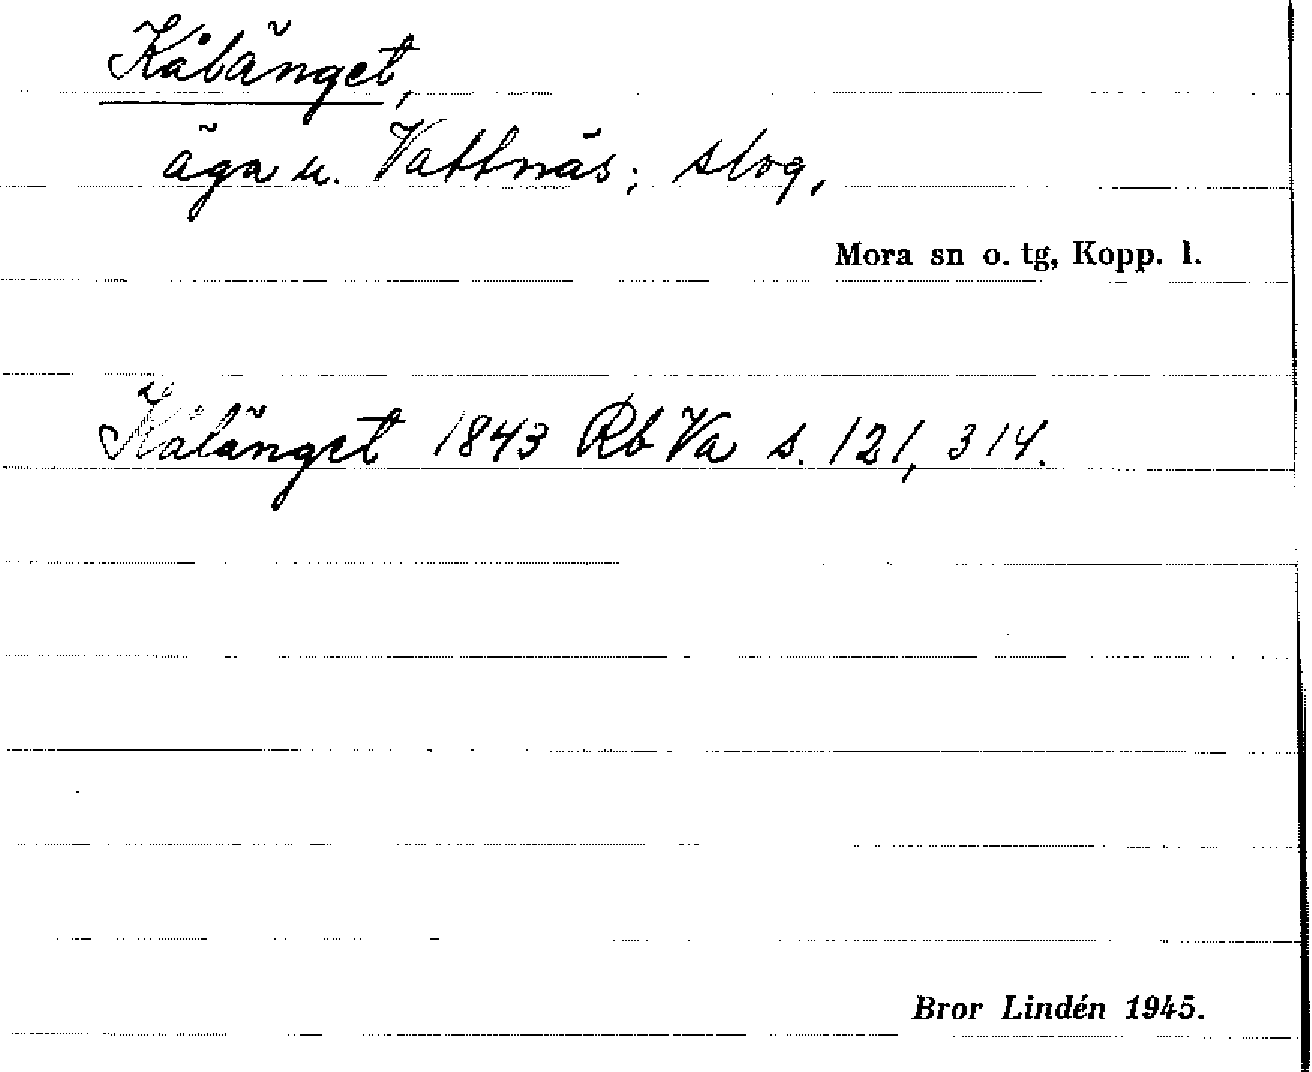 Kålänget,
äga u. Vattnäs; slog,
Mora sn o. tg, Kopp. l.
Kålänget 1843 Rb Va s. 121, 314.
Bror Lindén 1945.